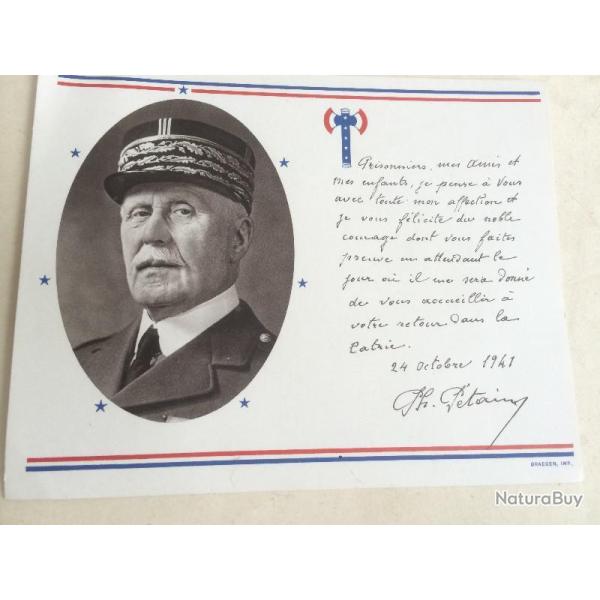 Prisonniers, mes amis et
mes enfants, je pense à vous
avec toute mon affection et
je vous félicite du noble
courage dont vous faites
preuve en attendant le
jour où il me sera donné
de vous accueillir à
votre retour dans la
Patrie.
24 octobre 1941
Ph. Pétain
BRAEGER, IMP.
NaturaBuy